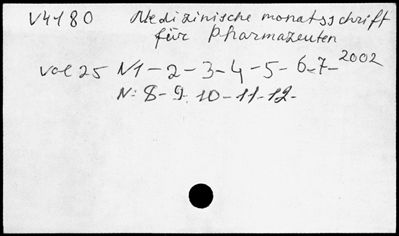 V4480 Medizinische monatsschrift
für Pharmazeuten
vol 25 N1-2-3-4-5-6-7- 2002
N: 8-9-10-11-12-